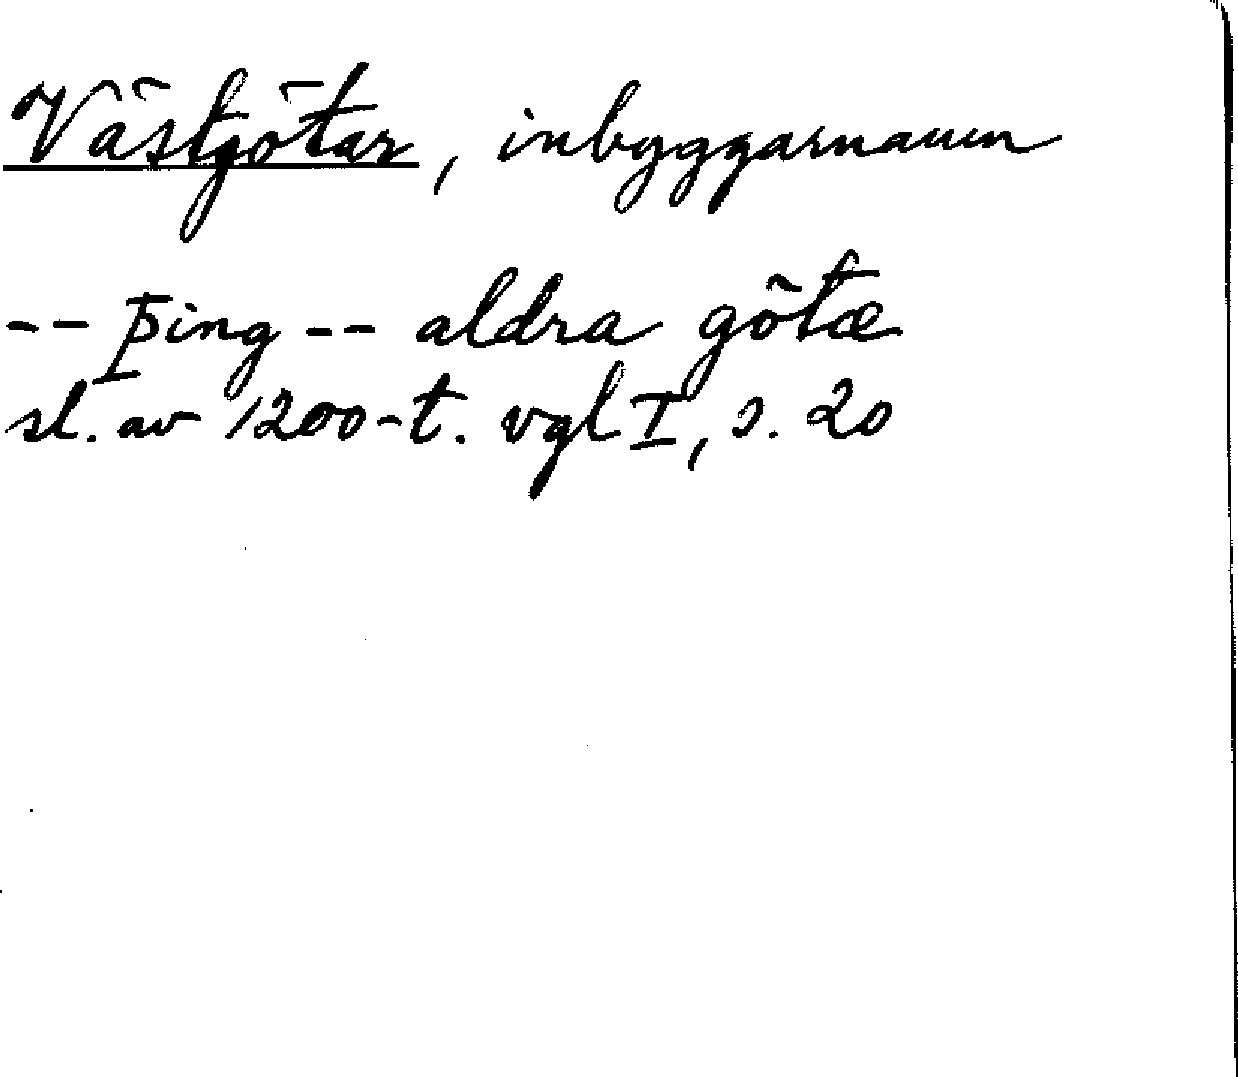 Västgötar, inbyggarnamn
-- þing -- aldra götæ
sl. av 1200-t. vgl I, s. 20